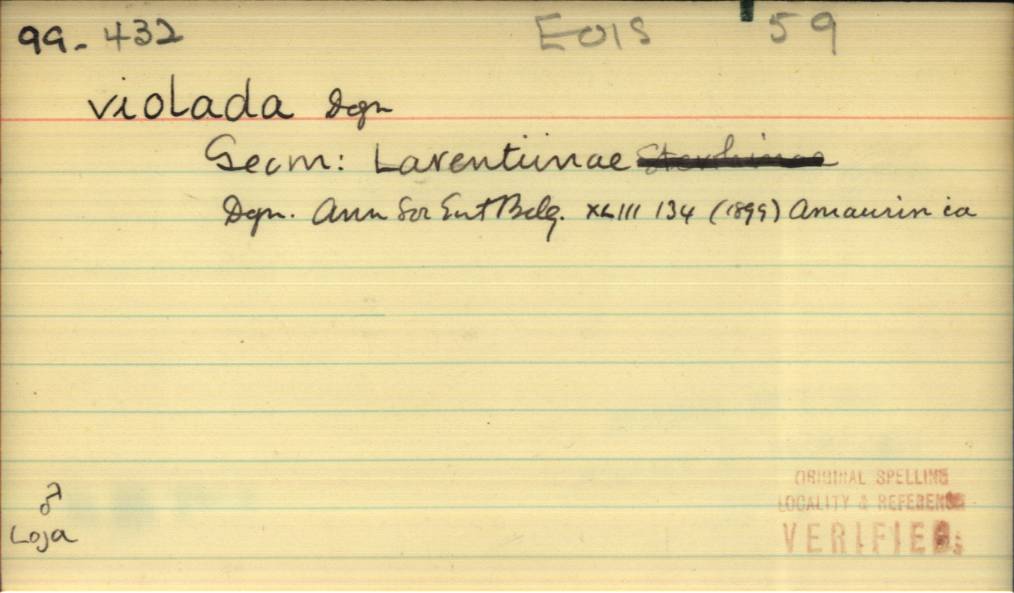 99-432 EOIS 59
violada Dgn
Geom: Larentiinae Sterrhinae
Dgn. Ann Soc Ent Belg. XLIII 134 (1899) Amaurinia
♂
Loja
ORIGINAL SPELLING
LOCALITY & REFERENCE
VERIFIED